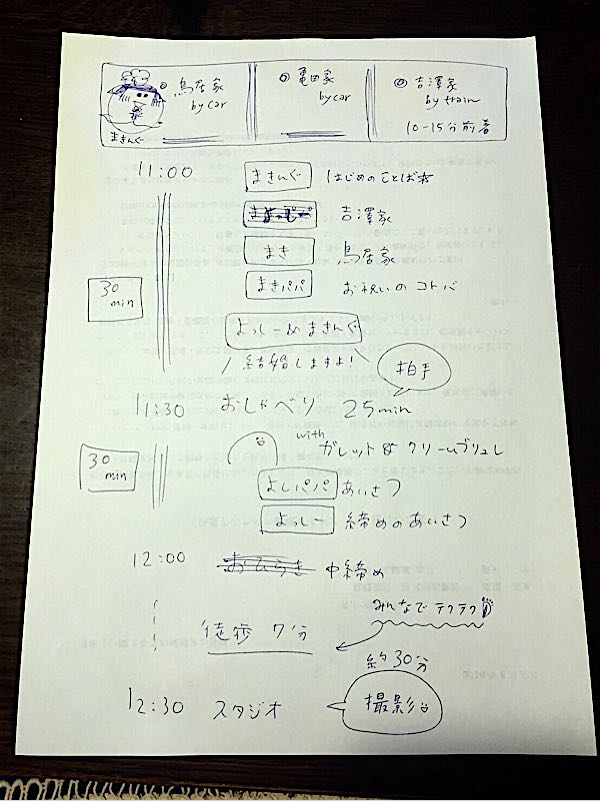 鳥居家
by car
亀田家
by car
吉澤家
by train
10-15分前着
まきんぐ
11:00 まきんぐ はじめのことば☆
吉澤家
まき 鳥居家
まきパパ お祝いのコトバ
30 min
よっしー& まきんぐ
結婚しますよ!
拍手
11:30 おしゃべり 25min
with ガレット & クリームブリュレ
30 min
よしパパ あいさつ
よっしー 締めのあいさつ
12:00 おひらき 中締め
みんなで テクテク
徒歩 7分
約30分
12:30 スタジオ
撮影